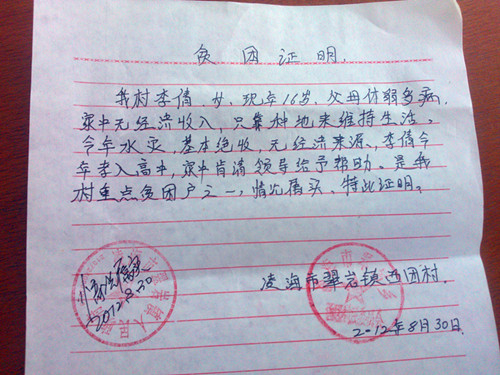 贫困证明.
我村李倩,女,现年16岁,父母体弱多病,
家中无经济收入,只靠种地来维持生活,
今年水灾,基本绝收,无经济来源,李倩今
年考入高中,家中肯请领导给予帮助。是我
村重点贫困户之一,情况属实、特此证明。
凌海市翠岩镇西团村.
2012.8.30
2012年8月30日.